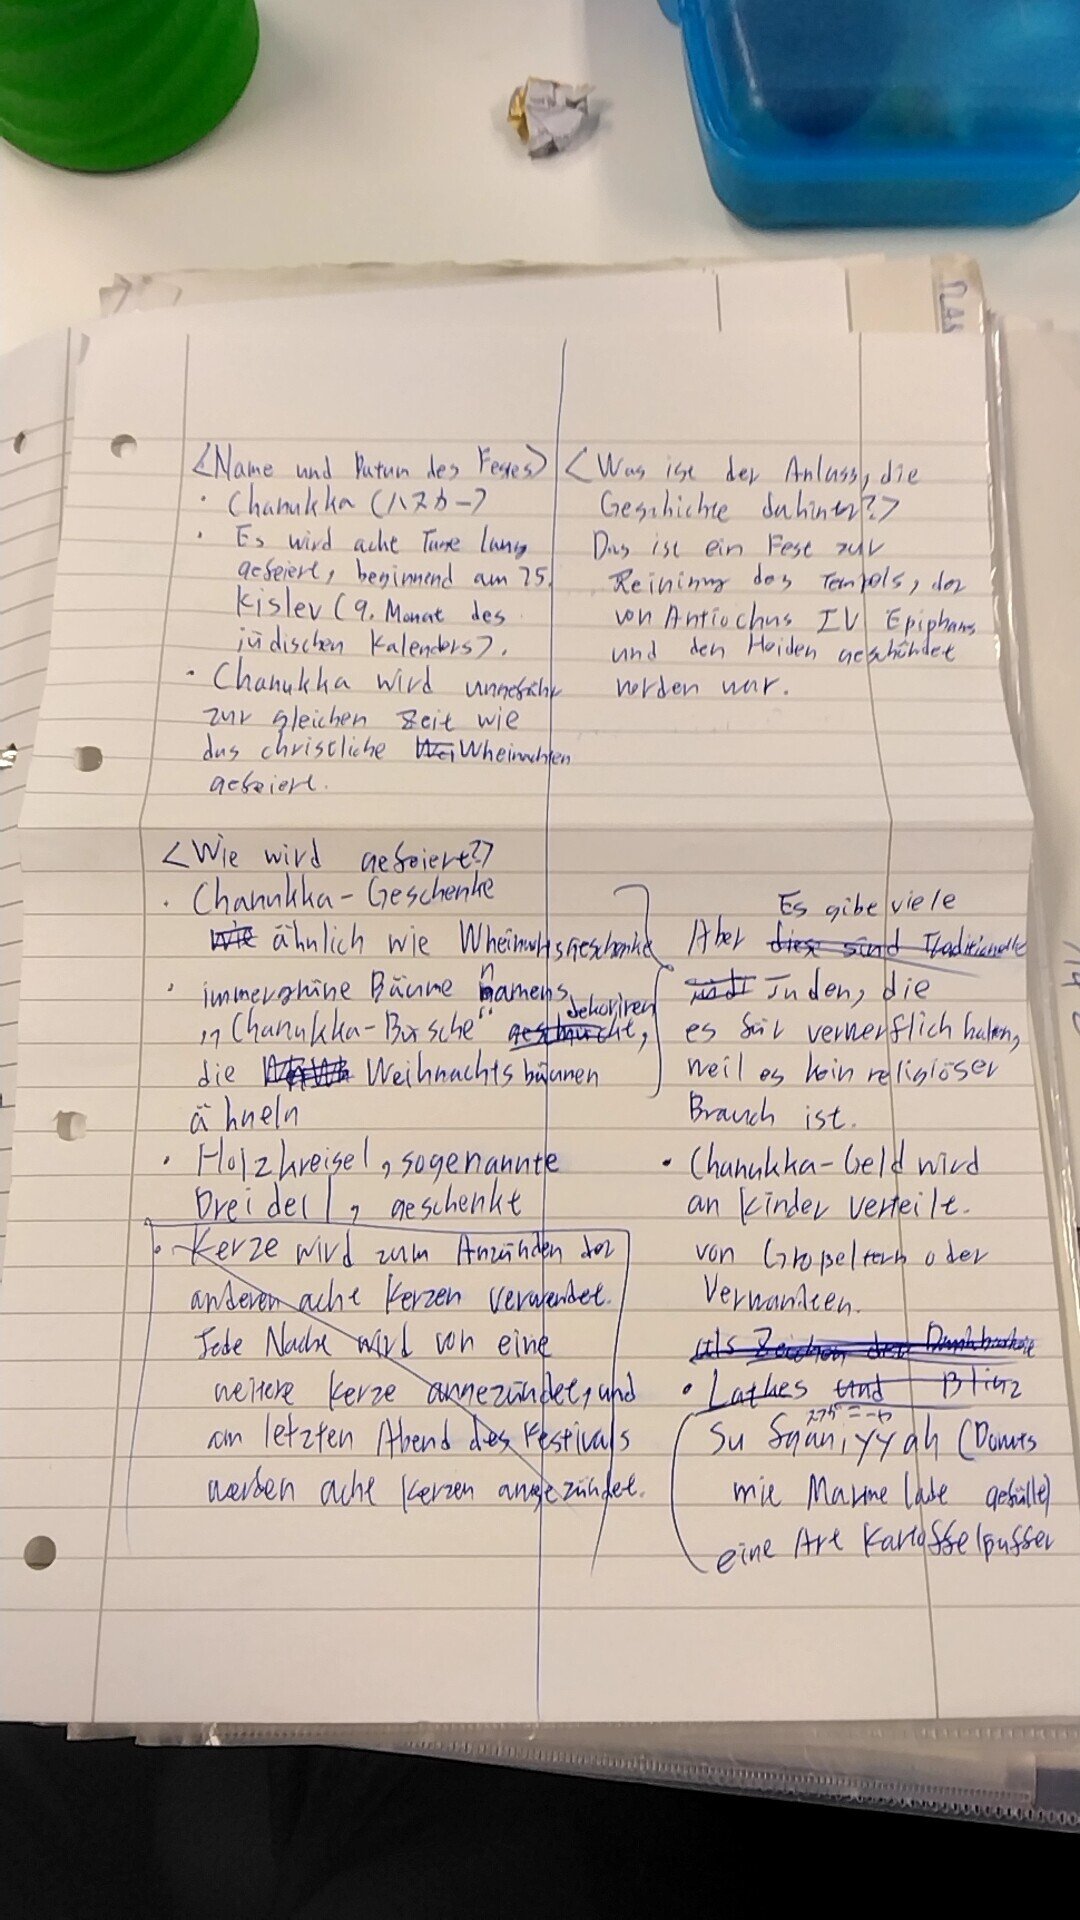 <Name und Datum des Festes>
· Chanukka (ハヌカー)
· Es wird acht Tage lang
gefeiert, beginnend am 25.
Kislev (9. Monat des
jüdischen Kalenders).
· Chanukka wird ungefähr
zur gleichen Zeit wie
das christliche Wheinachten
gefeiert.
<Was ist der Anlass, die
Geschichte dahinter?>
Das ist ein Fest zur
Reininng des Tempels, der
von Antiochus IV Epiphans
und den Heiden geschändet
worden war.
<Wie wird gefeiert?>
· Chanukka-Geschenke
wie ähnlich wie Wheinachtsgeschenke
· immergrüne Bäume namens
„Chanukka-Büsche" geschmückt, dekoriren
die Weihnachtsbäumen
ähneln
· Holzkreisel, sogenannte
Dreidel, geschenkt
· Kerze wird zum Anzünden der
anderen acht Kerzen verwendet.
Jede Nacht wird von eine
weitere Kerze angezündet, und
am letzten Abend des Festivals
werden acht Kerzen angezündet.
Es gibt viele
Aber diese sind Traditionelle
Juden, die
es für verwerflich halten,
weil es kein religiöser
Brauch ist.
· Chanukka-Geld wird
an Kinder verteilt.
von Großeltern oder
Verwandten.
als Zeichen der Dankbarkeit
· Latkes und Blinz
Su fganiyyah (Donuts
mit Marmelade gefüllt)
eine Art Kartoffelpuffer